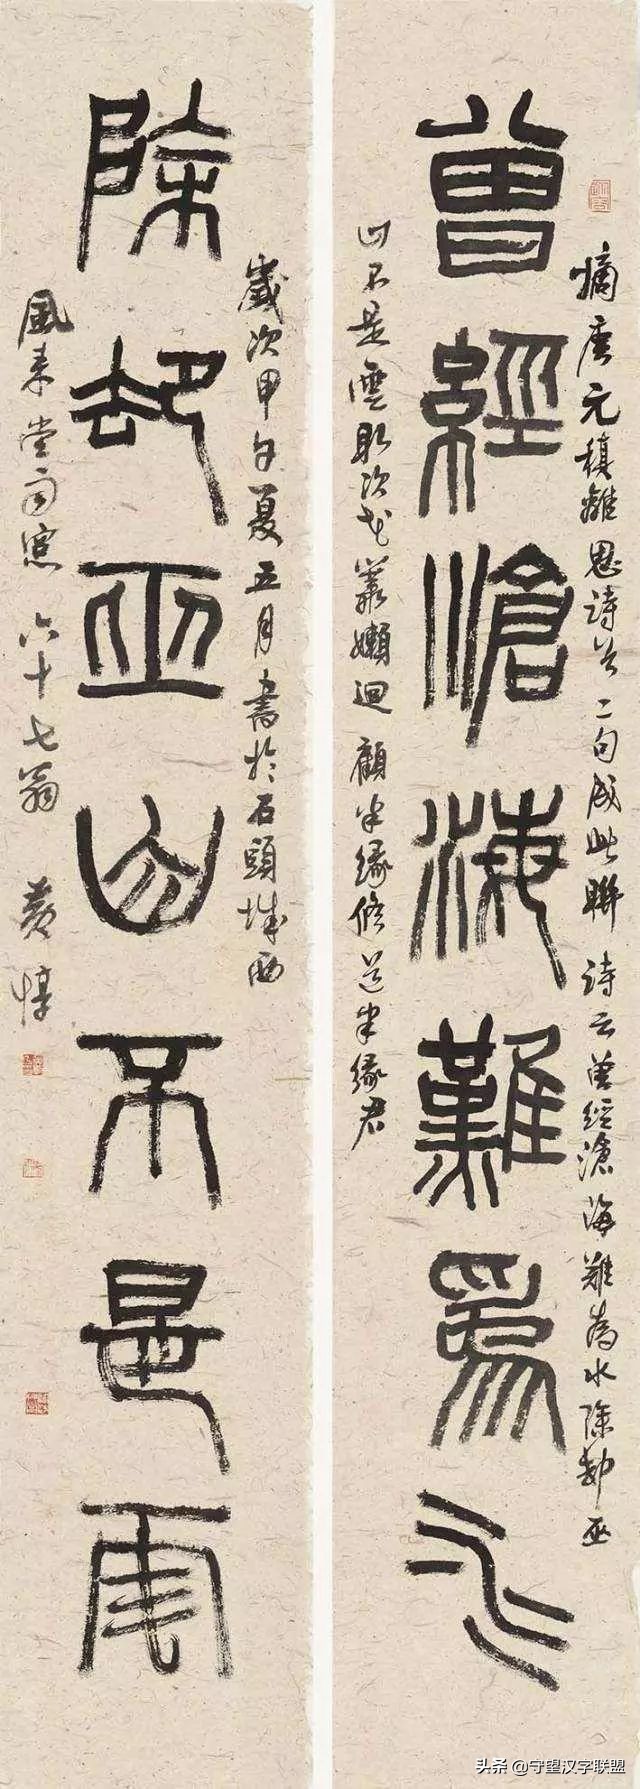 曾經滄海難爲水
摘唐元稹離思詩首二句成此聯 詩云曾經滄海難為水除却巫
山不是雲取次花叢嬾迴顧半緣修道半緣君
除却巫山不是雲
歲次甲午夏五月書於石頭城西
風來堂南窗 六十七翁 黃惇
头条 @守望汉字联盟